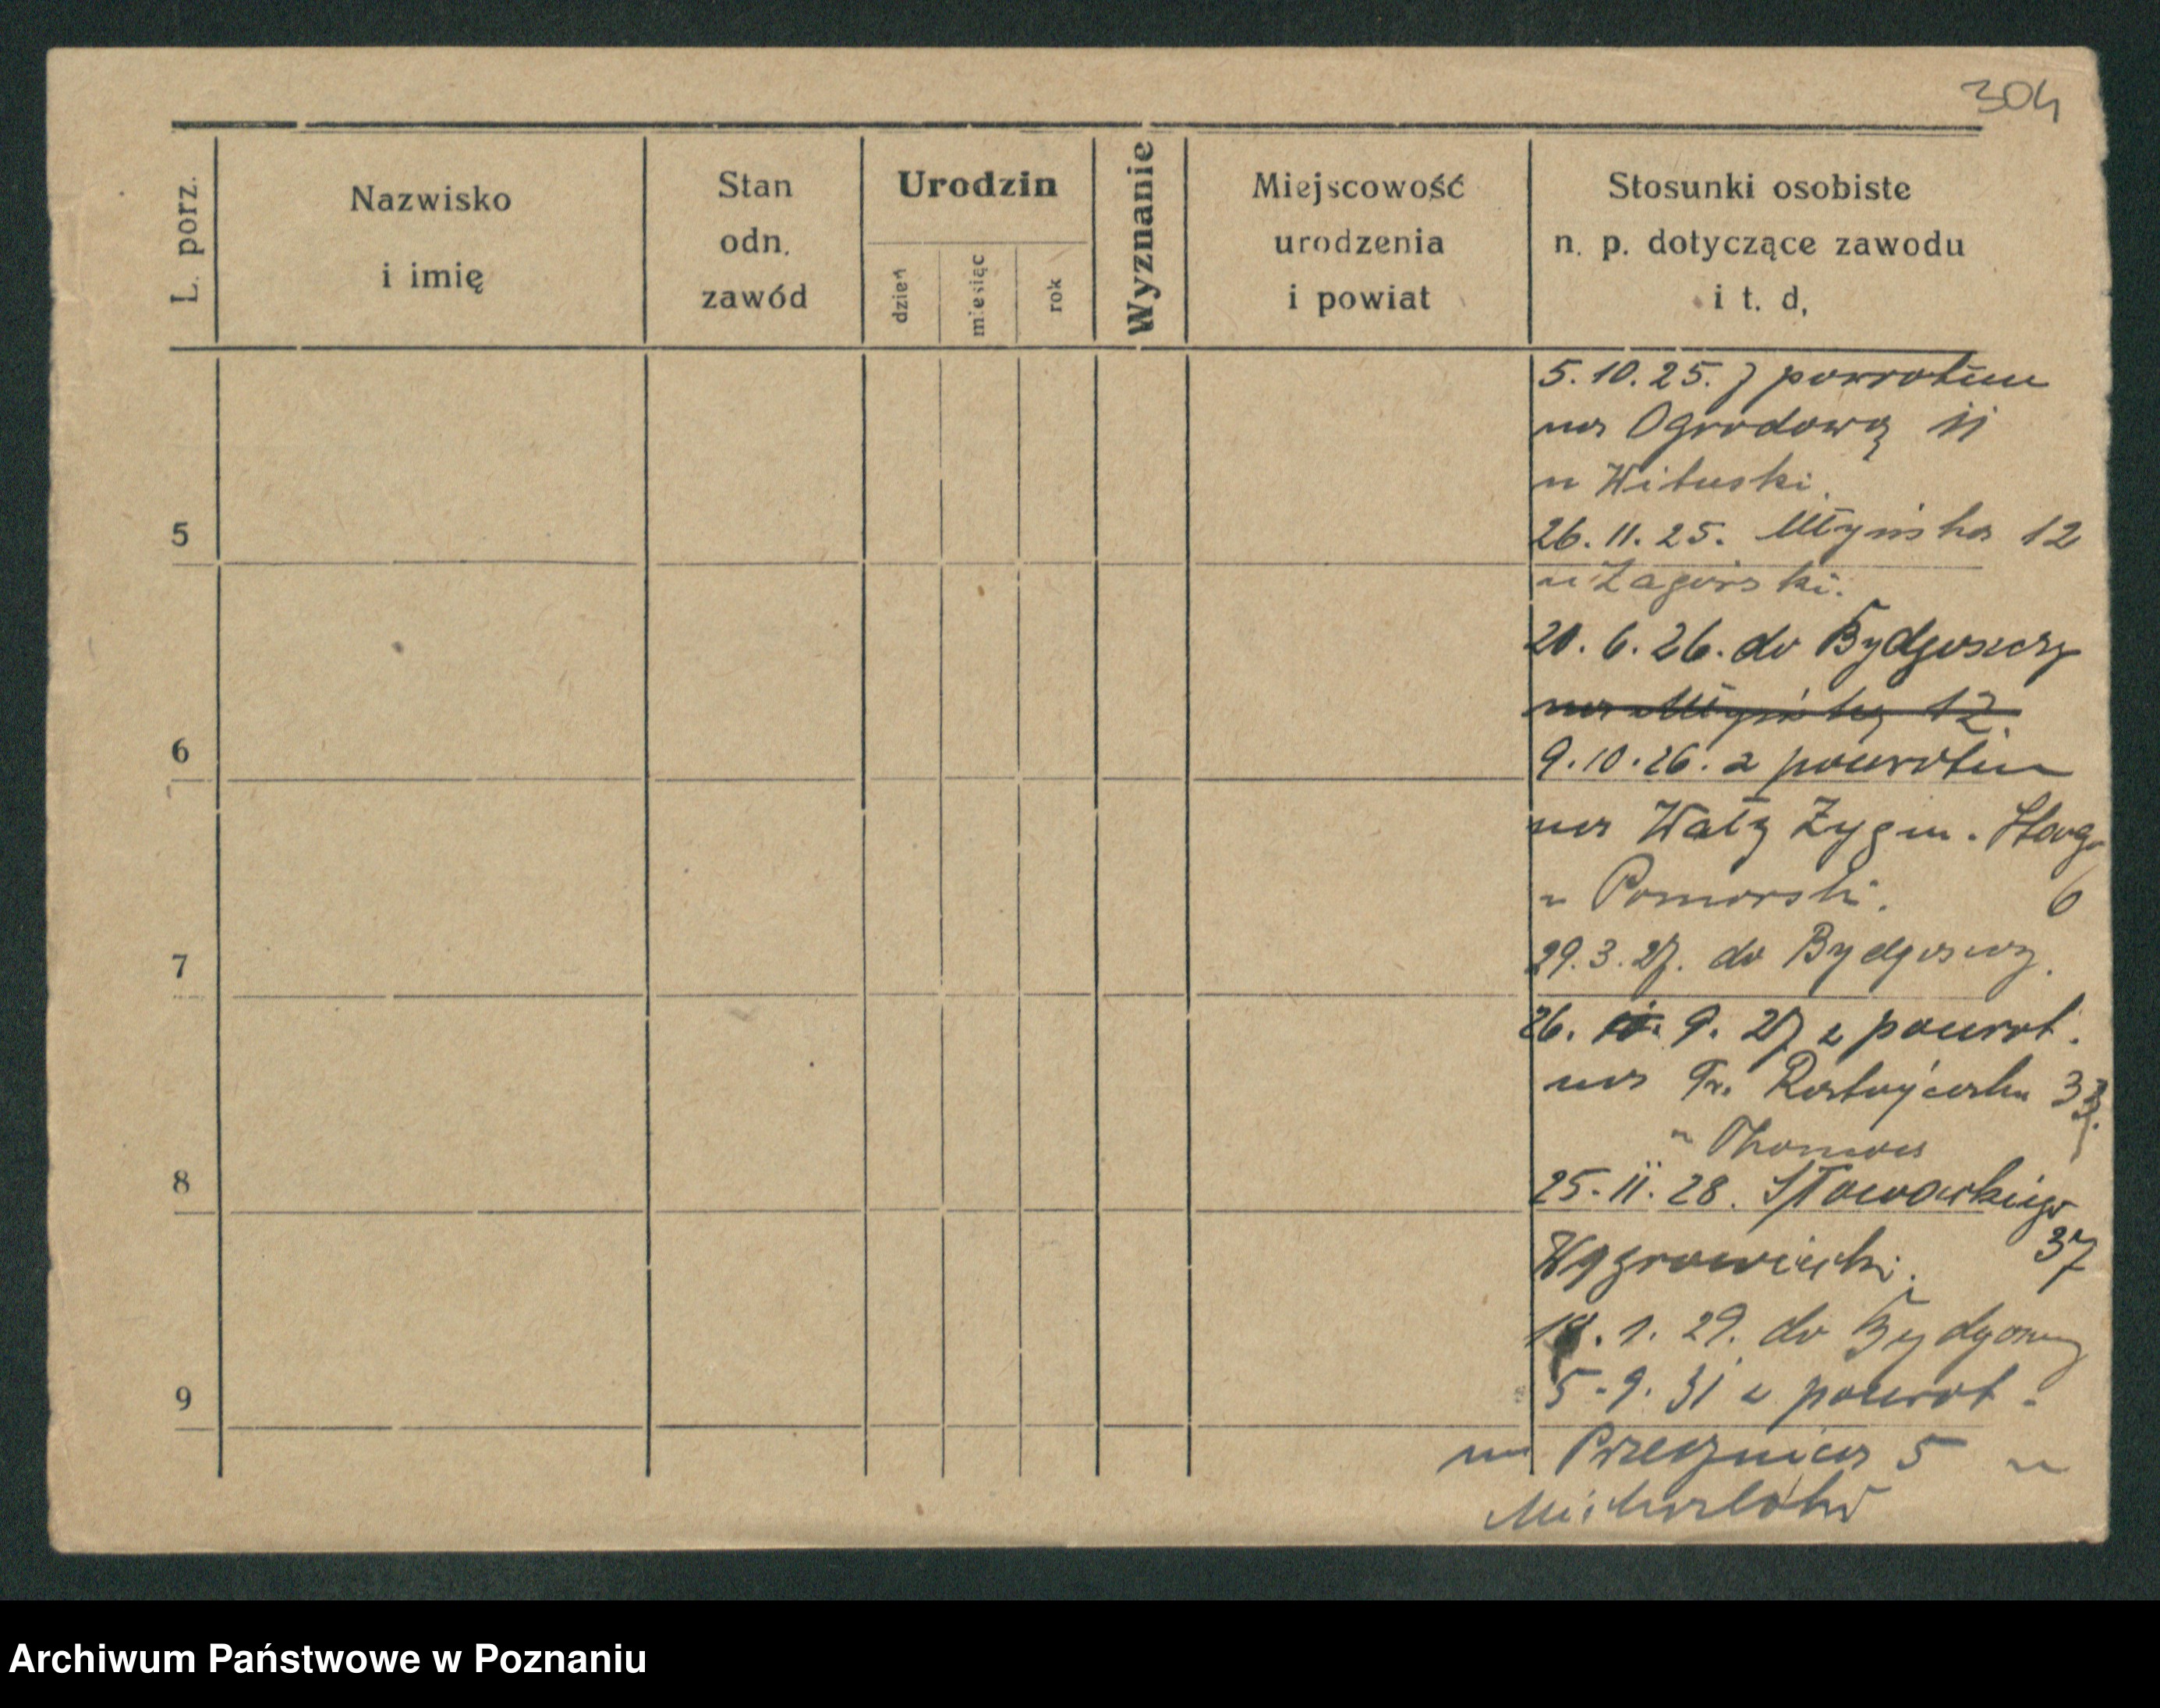 304
L. porz.
Nazwisko
i imię
Stan
odn.
zawód
Urodzin
dzień
miesiąc
rok
Wyznanie
Miejscowość
urodzenia
i powiat
Stosunki osobiste
n. p. dotyczące zawodu
i t. d.
5.10.25. z powrotem
na Ogrodową 11
u Wituski.
5
26.11.25. Młyńska 12
u Zagórski.
20.6.26. do Bydgoszczy
na Młyńską 12.
6
9.10.26. z powrotem
na Wały Zygm. Starego
u Pomorski. 6
7
29.3.27. do Bydgoszczy.
26. 9. 27 z powrot.
na Fr. Ratajczaka 33.
u Thomas
8
25.11.28. Słowackiego
Wągrowiecki. 37
1.29. do Bydgoszczy
9
5.9.31 z powrot.
na Przecznica 5 u